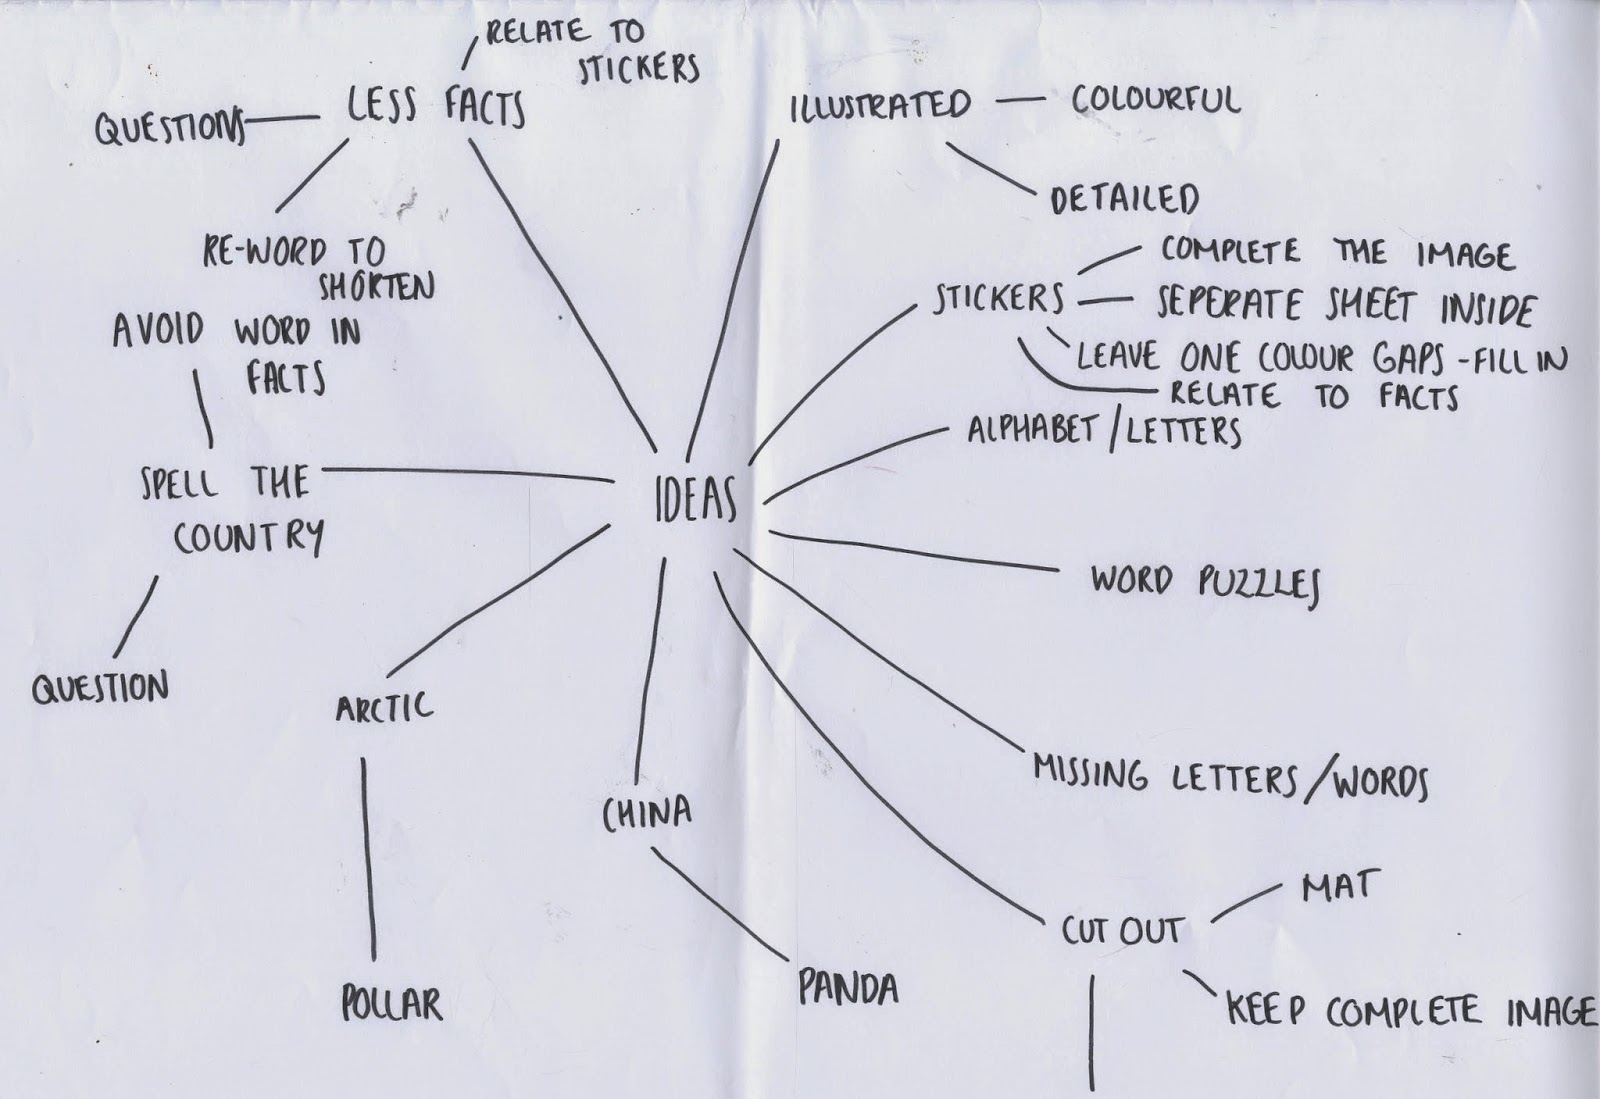 RELATE TO
STICKERS
LESS FACTS
QUESTIONS
RE-WORD TO
SHORTEN
AVOID WORD IN
FACTS
SPELL THE
COUNTRY
QUESTION
ILLUSTRATED
COLOURFUL
DETAILED
STICKERS
COMPLETE THE IMAGE
SEPERATE SHEET INSIDE
LEAVE ONE COLOUR GAPS - FILL IN
RELATE TO FACTS
ALPHABET/LETTERS
IDEAS
WORD PUZZLES
MISSING LETTERS/WORDS
ARCTIC
POLLAR
CHINA
PANDA
CUT OUT
MAT
KEEP COMPLETE IMAGE